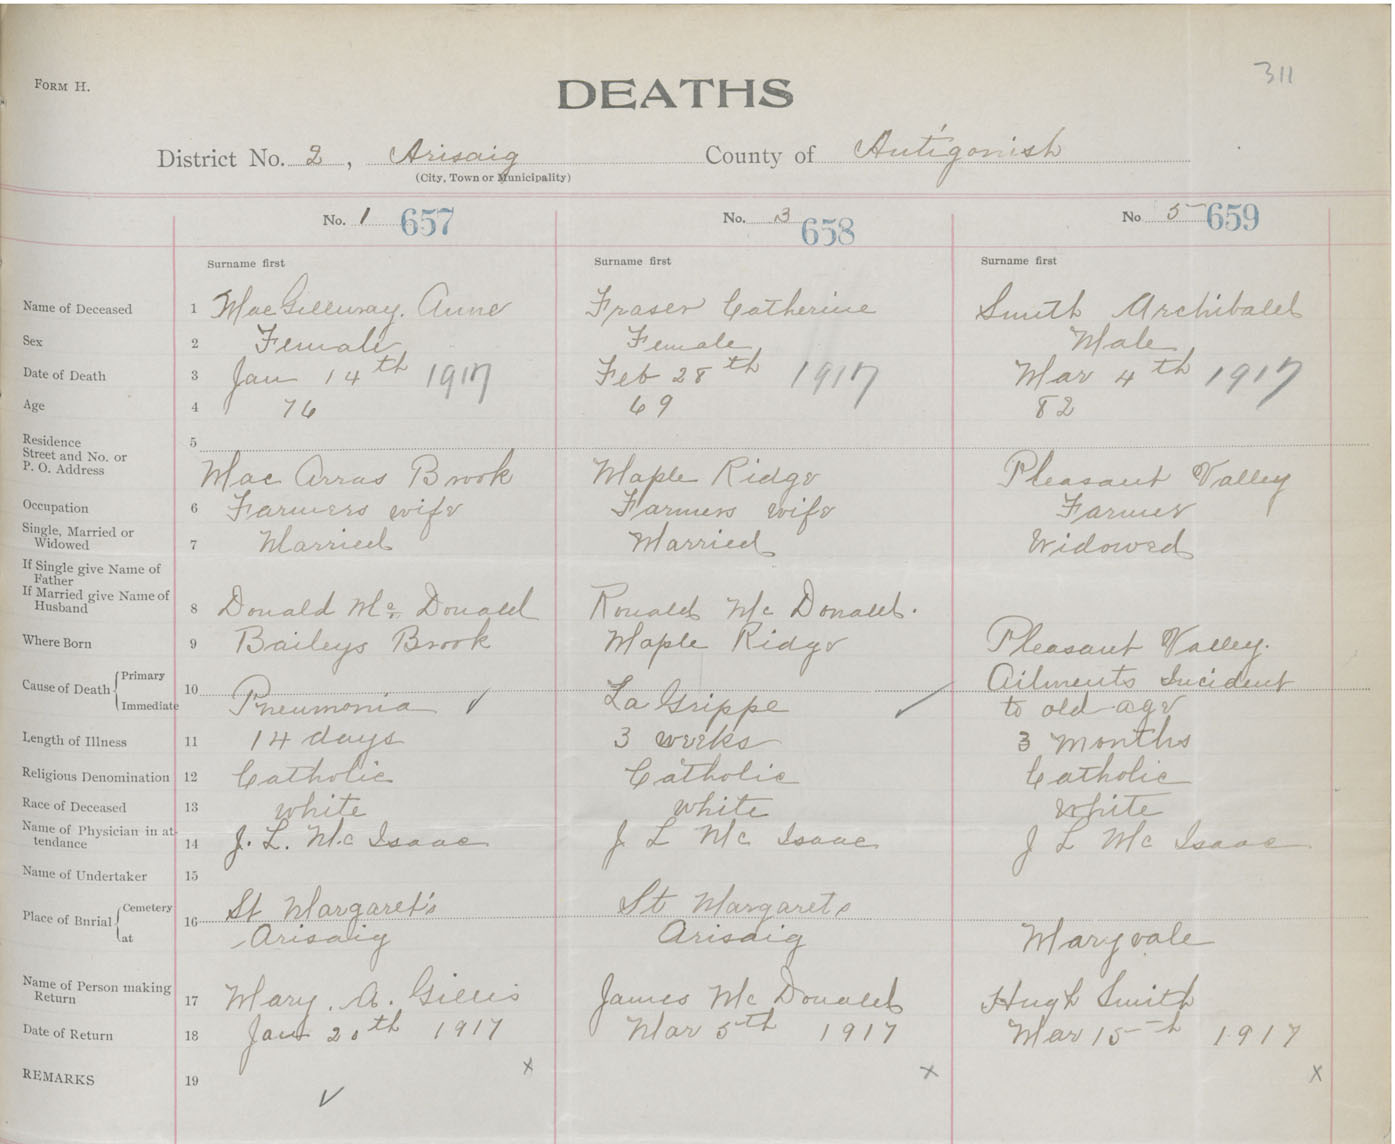 FORM H.
DEATHS
311
District No. 2, Arisaig County of Antigonish
(City, Town or Municipality)
No. 1 657 No. 3 658 No 5 659
Surname first Surname first Surname first
Name of Deceased 1 MacGillivray. Anne Fraser Catherine Smith Archibald
Sex 2 Female Female Male
Date of Death 3 Jan 14th 1917 Feb 28th 1917 Mar 4th 1917
Age 4 76 69 82
Residence 5
Street and No. or
P. O. Address Mac Arras Brook Maple Ridge Pleasant Valley
Occupation 6 Farmers wife Farmers wife Farmer
Single, Married or
Widowed 7 Married Married Widowed
If Single give Name of
Father
If Married give Name of
Husband 8 Donald Mc Donald Ronald Mc Donald.
Where Born 9 Baileys Brook Maple Ridge Pleasant Valley.
Cause of Death Primary 10 Ailments Incident
Immediate Pneumonia ✓ La Grippe ✓ to old age
Length of Illness 11 14 days 3 weeks 3 months
Religious Denomination 12 Catholic Catholic Catholic
Race of Deceased 13 white white white
Name of Physician in at-
tendance 14 J. L. Mc Isaac J L Mc Isaac J L Mc Isaac
Name of Undertaker 15
Place of Bnrial Cemetery 16 St Margaret's St Margarets
at Arisaig Arisaig Maryvale
Name of Person making
Return 17 Mary. A. Gillis James Mc Donald Hugh Smith
Date of Return 18 Jan 20th 1917 Mar 5th 1917 Mar 15th 1917
REMARKS 19 ✓ x x x